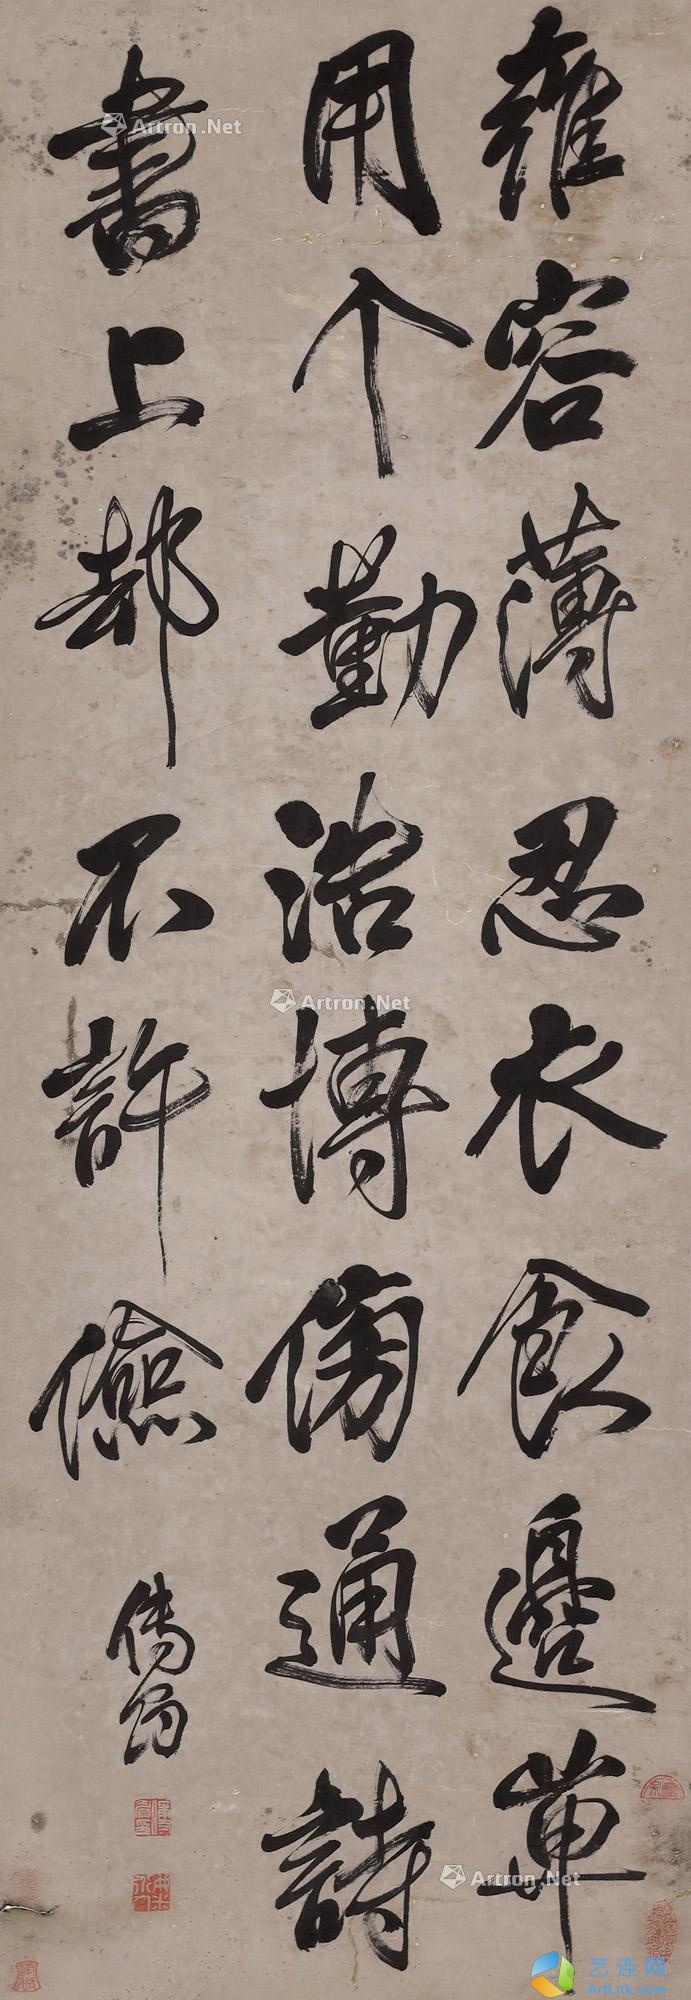 雍容薄忍衣食邊単
用个勤治博傍通詩
書上却不許儉
傅眉
Artron.Net
Artron.Net
Artron.Net
艺连网
ArtLnk.com